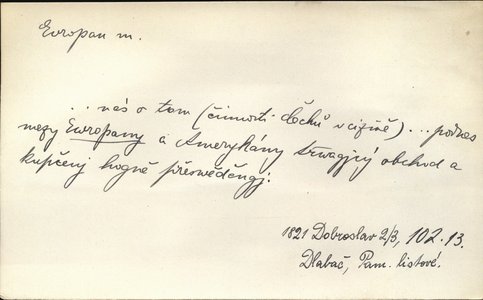 Evropan m.
.. nás o tom (činnosti Čechů v cizině) ... podnes
mezy Ewropany a Amerykány trwagjcý obchod a
kupčenj hogně přeswědčugj:
1821 Dobroslav 2/3, 102.13.
Dlabač, Pam. listové.